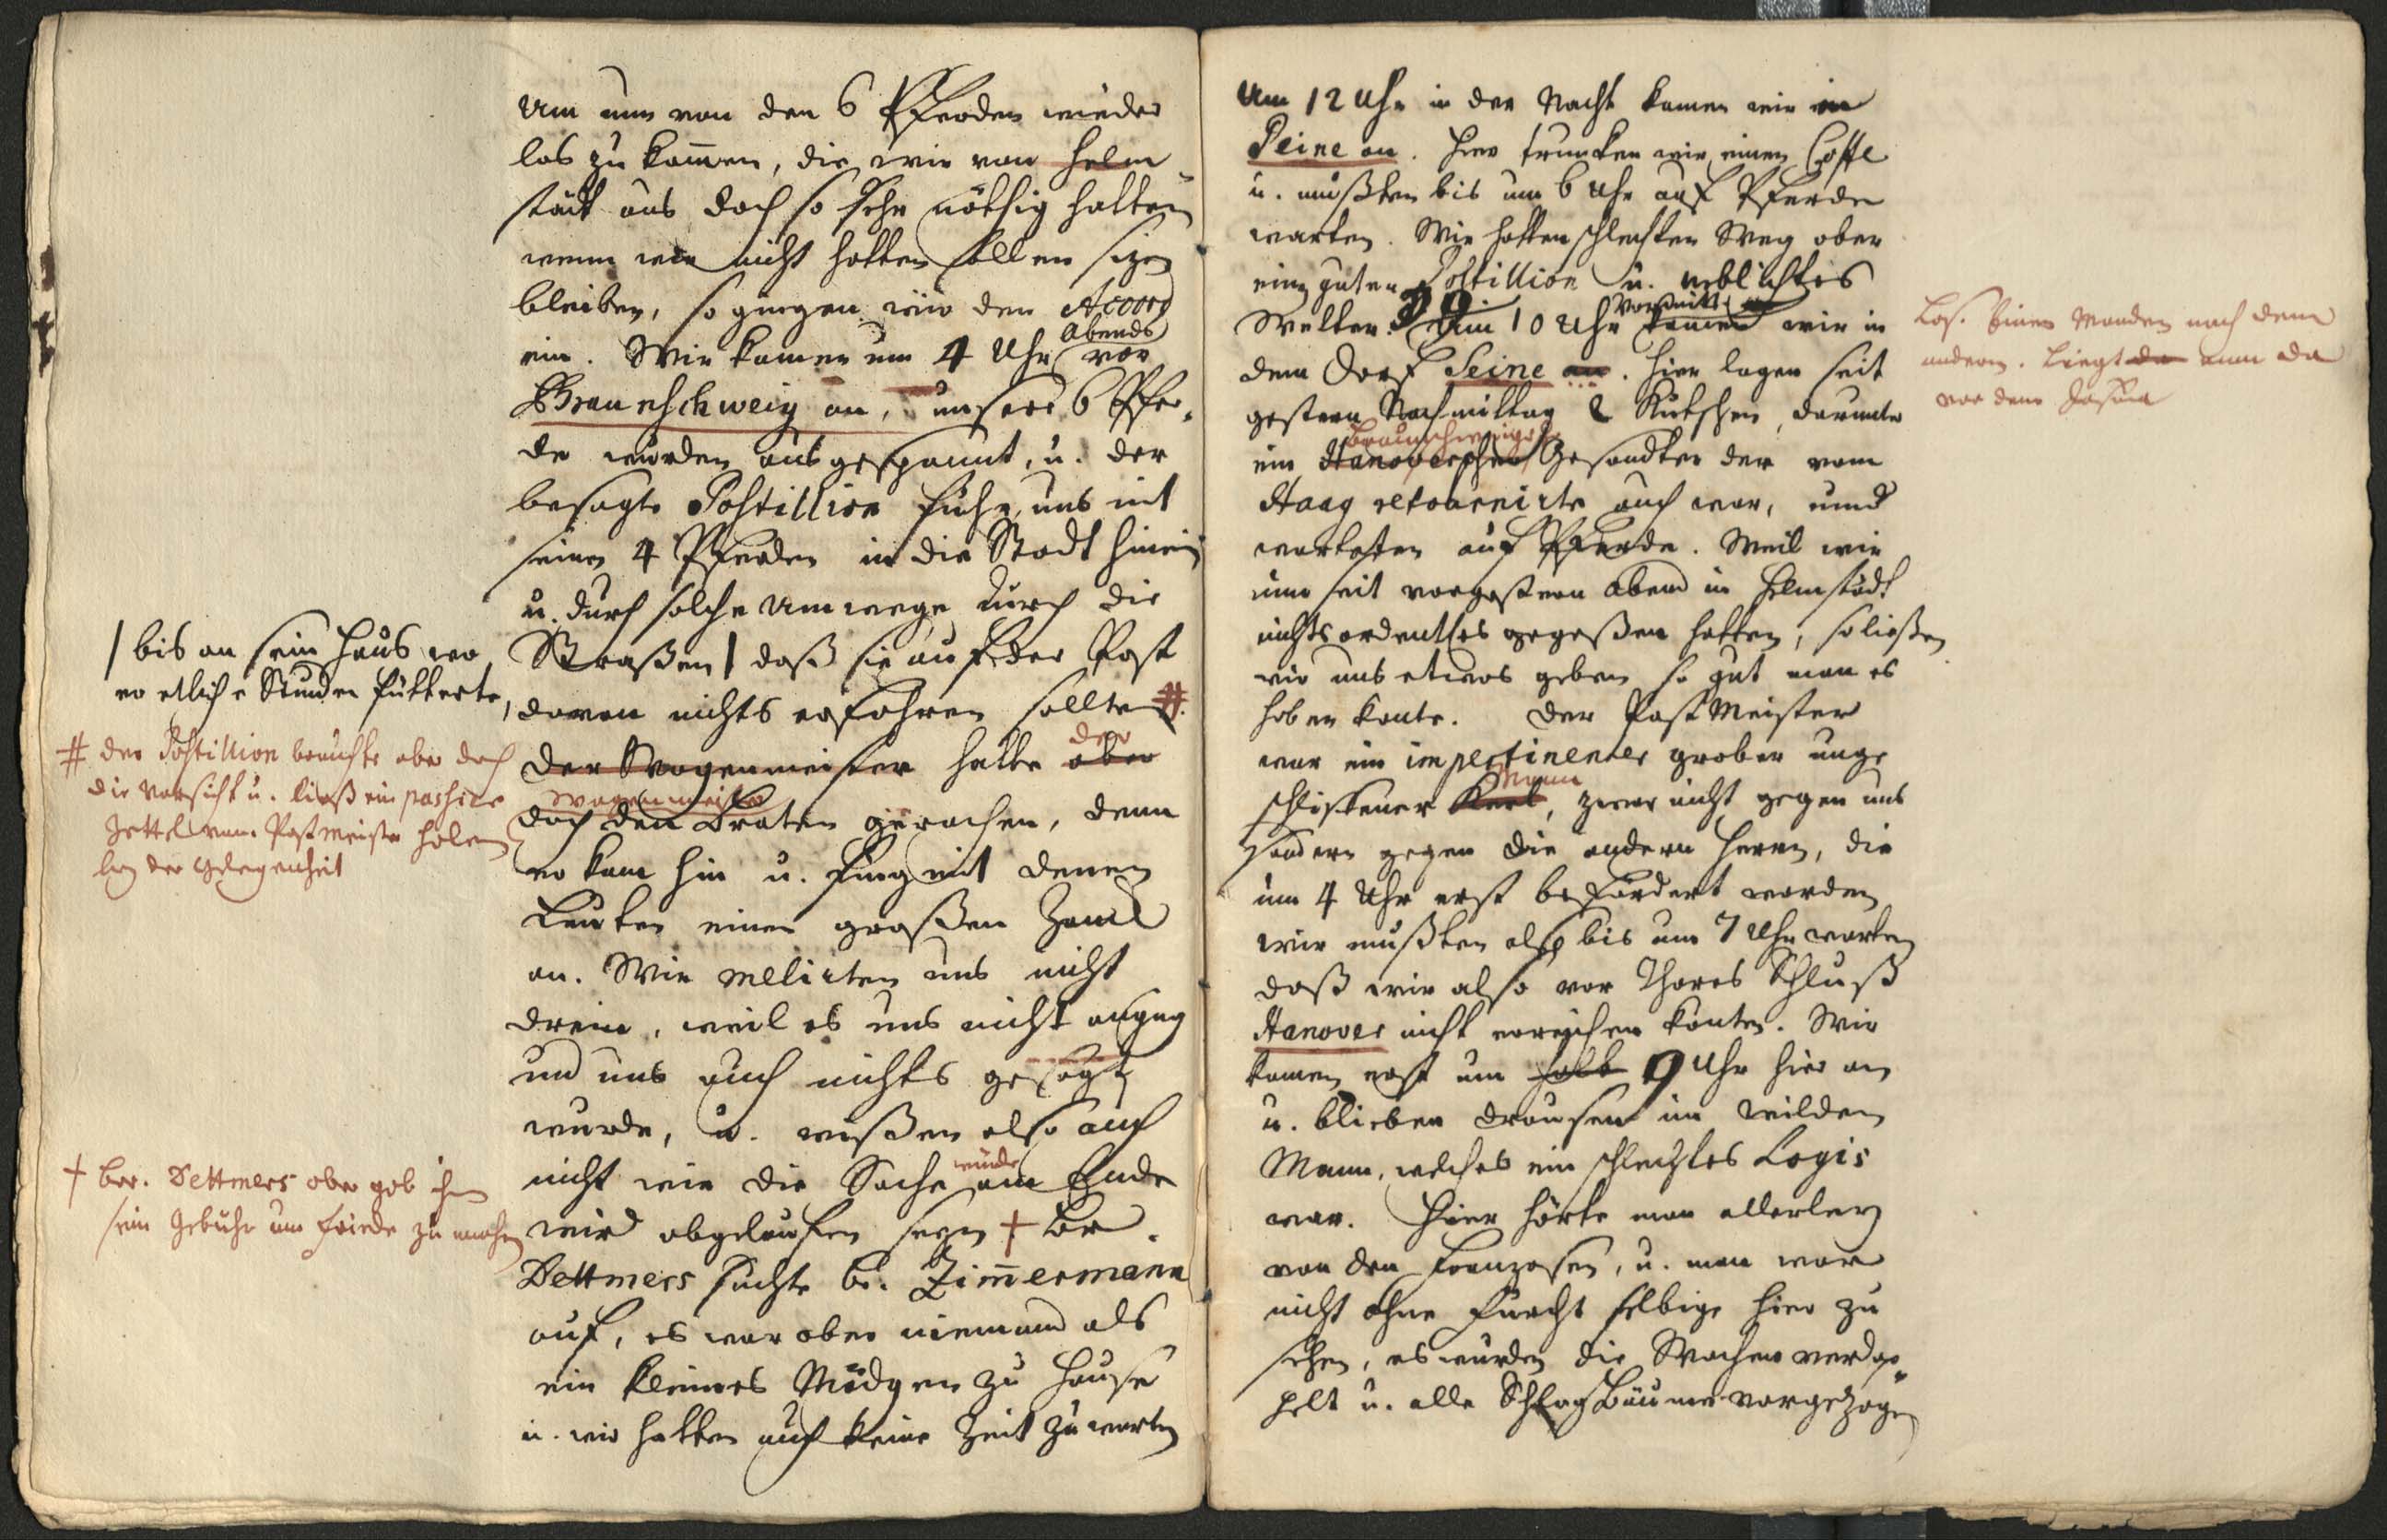 Um nun von den 6 Pferden wieder
los zu kommen, die wir von Helm-
städt aus doch so sehr nöthig hatten
wenn wir nicht hatten sollen sizen
bleiben, so giengen wir den Accord
ein. Wir kamen um 4 Uhr Abends vor
Braunschweig an, unsere 6 Pfer-
de wurden ausgespannt, u. der
besagte Postillion fuhr uns mit
seinen 4 Pferden in die Stadt hinein
u. durch solche Umwege durch die
Straßen | daß sie auf der Post
davon nichts erfahren sollten #.
Der Wagenmeister hatte aber der
Wagenmeister
doch den Braten gerochen, denn
er kam hin u. fing mit denen
Leuten einen großen Zank
an. Wir melirten uns nicht
drein, weil es uns nicht anging
und uns auch nichts gesagt
wurde, u. wißen also auch
nicht wie die Sache würde am Ende
wird abgelaufen seyn + Br.
Dettmers suchte Br. Zim̄ermann
auf, es war aber niemand als
ein kleines Mädgen zu Hause
u. wir hatten auch keine Zeit zu warten
| bis an sein Haus wo
er etliche Stunden futterte,
# der Postillion brauchte aber doch
die Vorsicht u. ließ ein passier
Zettel vom Postmeister holen
bey der Gelegenheit
+ Br. Dettmers aber gab ihm
sein Gebühr um Friede zu machen
Um 12 Uhr in der Nacht kamen wir in
Peine an. Hier truncken wir einen Coffe
u. mußten bis um 6 Uhr auf Pferde
warten. Wir hatten schlechten Weg aber
einen guten Postillion u. neblichtes
Wetter. Um 10 Uhr Vormitt. kamen wir in
dem Dorf Seine an. Hier lagen seit
gestern Nachmittag 2 Kutschen, darunter
Braunschweigscher
ein Hanoverscher Gesandter der vom
Haag retournirte auch war, und
warteten auf Pferde. Weil wir
nun seit vorgestern Abend in Helmstädt
nichts ordentlichs gegeßen hatten, so ließen
wir uns etwas geben so gut man es
haben konte. Der PostMeister
war ein impertinenter grober unge
schliffener Kerl Mann, zwar nicht gegen uns
sondern gegen die andern Herrn, die
um 4 Uhr erst befördert worden
wir mußten also bis um 7 Uhr warten
daß wir also vor Thores Schluß
Hanover nicht erreichen konten. Wir
kamen erst um halb 9 Uhr hier an
u. blieben drausen im wilden
Mann, welches ein schlechtes Logis
war. Hier hörte man allerley
von den Franzosen, u. man war
nicht ohne Furcht selbige hier zu
sehen, es wurden die Wachen verdop-
pelt u. alle Schlagbäume vorgezogen
einen nach dem
andern. liegt da nun da
vor dem